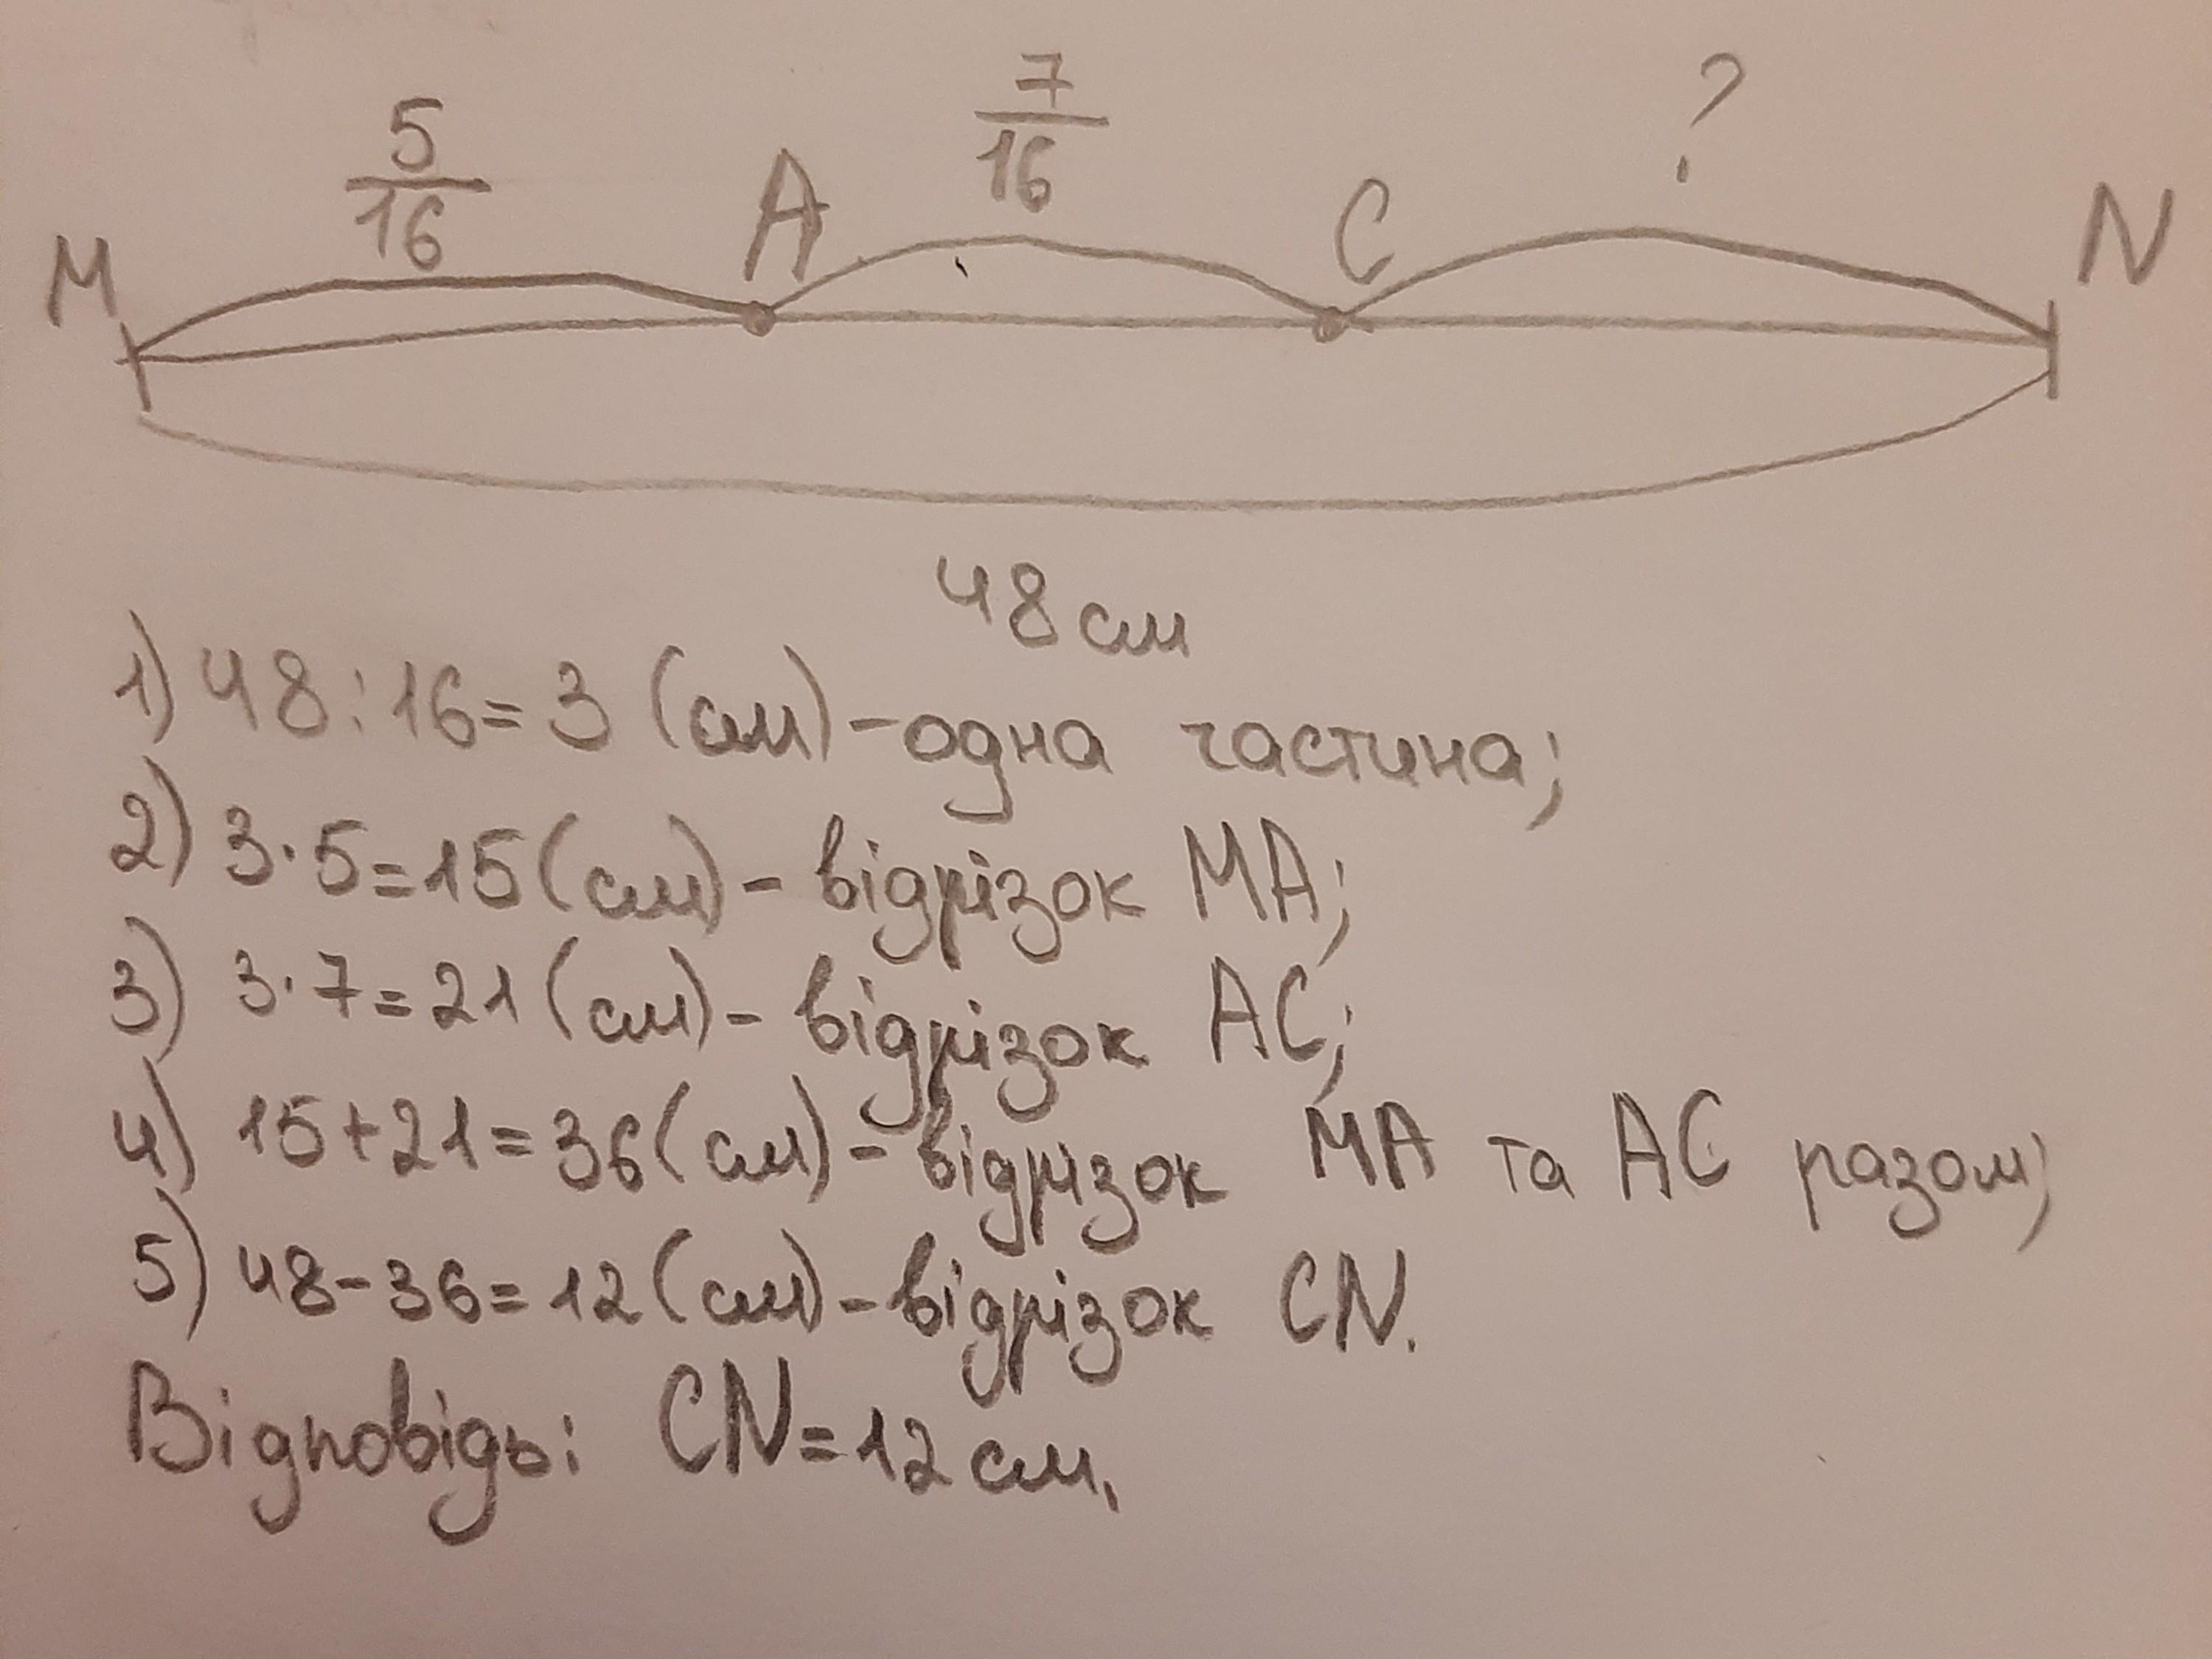 5/16
7/16
?
M A C N
48 см
1) 48:16=3 (см) - одна частина;
2) 3·5=15 (см) - відрізок MA;
3) 3·7=21 (см) - відрізок AC;
4) 15+21=36 (см) - відрізок MA та AC разом;
5) 48-36=12 (см) - відрізок CN.
Відповідь: CN=12 см.